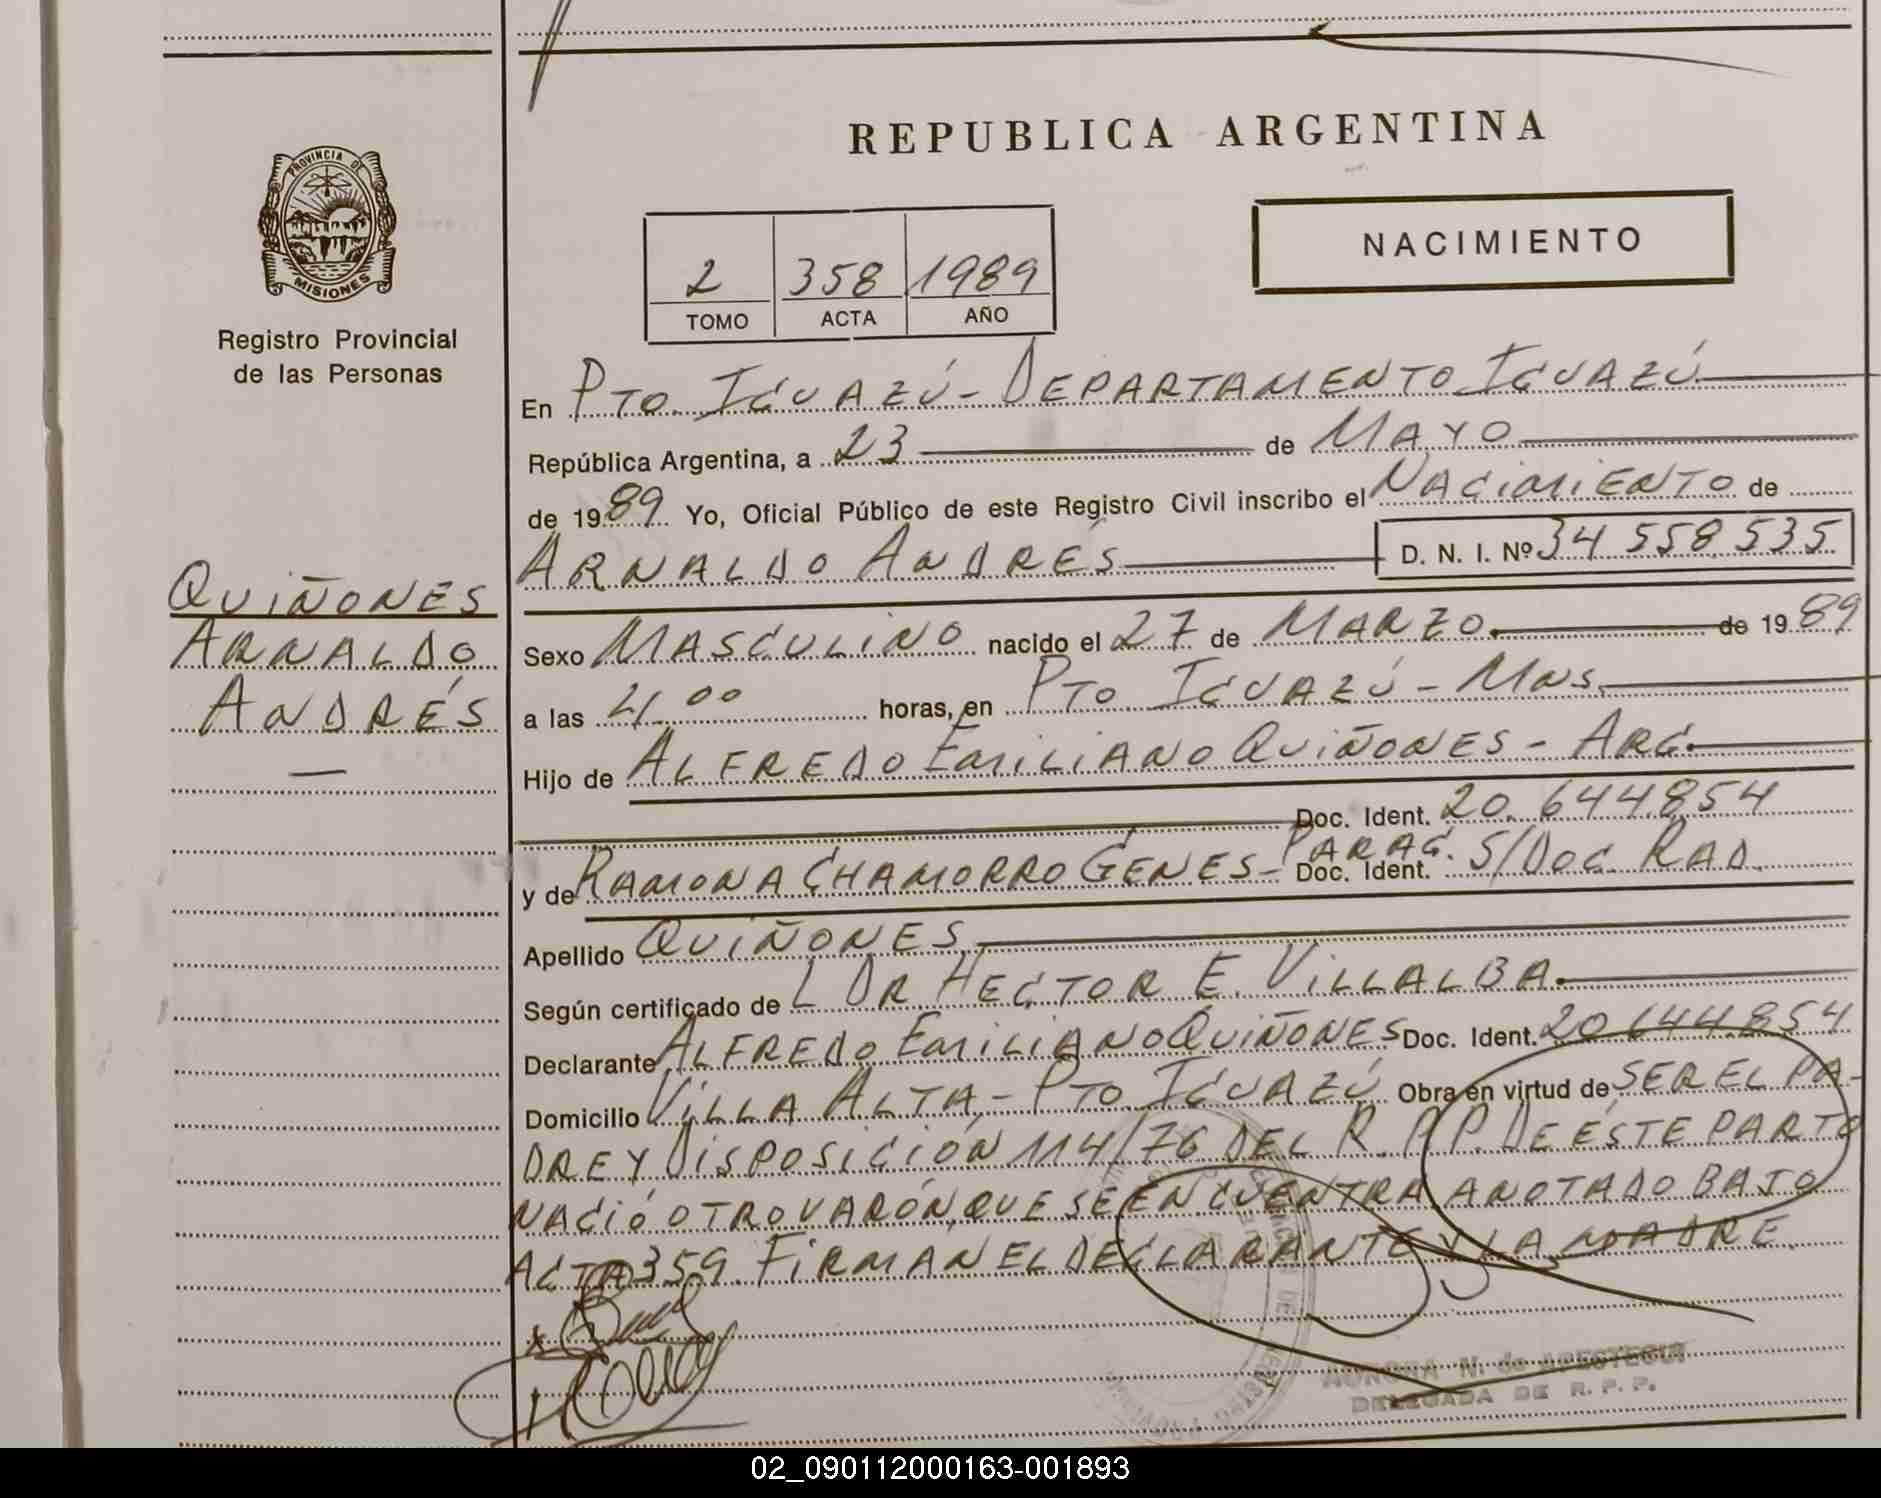 REPUBLICA ARGENTINA
PROVINCIA DE
MISIONES
Registro Provincial
de las Personas
NACIMIENTO
2 358 1989
TOMO ACTA AÑO
En PTO. IGUAZÚ - DEPARTAMENTO IGUAZÚ
República Argentina, a 23 de MAYO
de 1989 Yo, Oficial Público de este Registro Civil inscribo el NACIMIENTO de
ARNALDO ANDRÉS D. N. I. Nº 34 558 535
QUIÑONES
ARNALDO
ANDRÉS
Sexo MASCULINO nacido el 27 de MARZO de 1989
a las 4,00 horas, en PTO IGUAZÚ - MNS.
Hijo de ALFREDO EMILIANO QUIÑONES - ARG.
Doc. Ident. 20.644.854
y de RAMONA CHAMORRO GENES - PARAG. Doc. Ident. S/DOC. RAD.
Apellido QUIÑONES
Según certificado de L DR HECTOR E. VILLALBA.
Declarante ALFREDO EMILIANO QUIÑONES Doc. Ident. 20 644.854
Domicilio VILLA ALTA - PTO. IGUAZÚ Obra en virtud de SER EL PA-
DRE Y DISPOSICIÓN 114/76 DEL R.P.P. DE ÉSTE PARTO
NACIÓ OTRO VARÓN, QUE SE ENCUENTRA ANOTADO BAJO
ACTA 359. FIRMAN EL DECLARANTE Y LA MADRE.
AURORA N. de APESTEGUI
DELEGADA DE R. P. P.
02_090112000163-001893